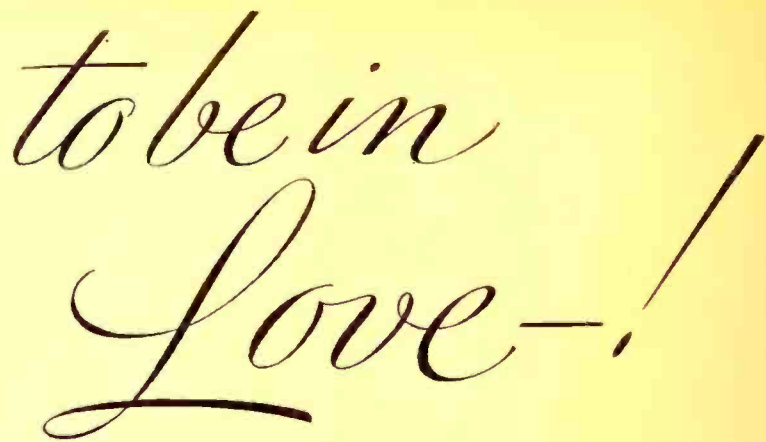 to be in
Love—!